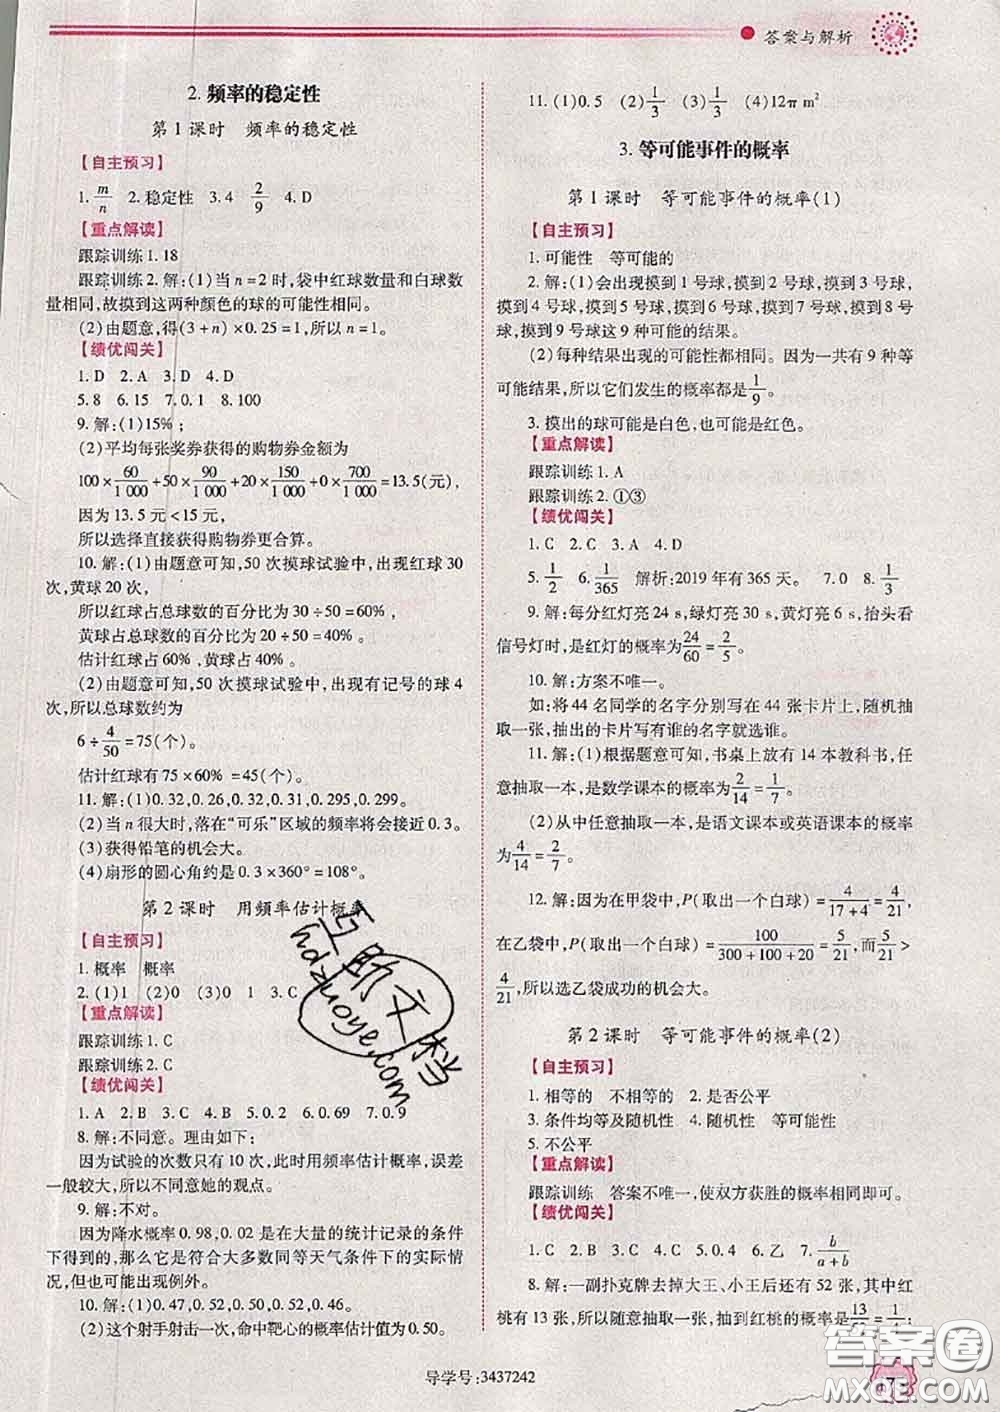 答案与解析
2. 频率的稳定性
第1课时　频率的稳定性
【自主预习】
1. m/n　2. 稳定性　3. 4　2/9　4. D
【重点解读】
跟踪训练 1. 18
跟踪训练 2. 解:(1)当 n=2 时,袋中红球数量和白球数
量相同,故摸到这两种颜色的球的可能性相同。
(2)由题意,得(3+n)×0.25=1,所以 n=1。
【绩优闯关】
1. D　2. A　3. D　4. D
5. 8　6. 15　7. 0.1　8. 100
9. 解:(1)15%;
(2)平均每张奖券获得的购物券金额为
100×60/1 000+50×90/1 000+20×150/1 000+0×700/1 000=13.5(元),
因为 13.5 元<15 元,
所以选择直接获得购物券更合算。
10. 解:(1)由题意可知,50 次摸球试验中,出现红球 30
次,黄球 20 次,
所以红球占总球数的百分比为 30÷50=60%,
黄球占总球数的百分比为 20÷50=40%。
估计红球占 60%,黄球占 40%。
(2)由题意可知,50 次摸球试验中,出现有记号的球 4
次,所以总球数约为
6÷4/50=75(个)。
估计红球有 75×60%=45(个)。
11. 解:(1)0.32,0.26,0.32,0.31,0.295,0.299。
(2)当 n 很大时,落在“可乐”区域的频率将会接近 0.3。
(3)获得铅笔的机会大。
(4)扇形的圆心角约是 0.3×360°=108°。
第2课时　用频率估计概率
【自主预习】
1. 概率　概率
2. (1)1　(2)0　(3)0　1　3. C
【重点解读】
跟踪训练 1. C
跟踪训练 2. C
【绩优闯关】
1. A　2. B　3. C　4. B　5. 0.2　6. 0.69　7. 0.9
8. 解:不同意。理由如下:
因为试验的次数只有 10 次,此时用频率估计概率,误差
一般较大,所以不同意她的观点。
9. 解:不对。
因为降水概率 0.98,0.02 是在大量的统计记录的条件
下得到的,那么它是符合大多数同等天气条件下的实际情
况,但也可能出现例外。
10. 解:(1)0.47,0.52,0.50,0.52,0.46。
(2)这个射手射击一次,命中靶心的概率估计值为 0.50。
11. (1)0.5　(2)1/3　(3)1/3　(4)12π m²
3. 等可能事件的概率
第1课时　等可能事件的概率(1)
【自主预习】
1. 可能性　等可能的
2. 解:(1)会出现摸到 1 号球,摸到 2 号球,摸到 3 号球,
摸到 4 号球,摸到 5 号球,摸到 6 号球,摸到 7 号球,摸到 8 号
球,摸到 9 号球这 9 种可能的结果。
(2)每种结果出现的可能性都相同。因为一共有 9 种等
可能结果,所以它们发生的概率都是1/9。
3. 摸出的球可能是白色,也可能是红色。
【重点解读】
跟踪训练 1. A
跟踪训练 2. ①③
【绩优闯关】
1. C　2. C　3. A　4. D
5. 1/2　6. 1/365　解析:2019 年有 365 天。　7. 0　8. 1/3
9. 解:每分红灯亮 24 s,绿灯亮 30 s,黄灯亮 6 s,抬头看
信号灯时,是红灯的概率为24/60=2/5。
10. 解:方案不唯一。
如:将 44 名同学的名字分别写在 44 张卡片上,随机抽
取一张,抽出的卡片写有谁的名字就选谁。
11. 解:(1)根据题意可知,书桌上放有 14 本教科书,任
意抽取一本,是数学课本的概率为2/14=1/7。
(2)从中任意抽取一本,是语文课本或英语课本的概率
为4/14=2/7。
12. 解:在甲袋中,P(取出一个白球)=4/(17+4)=4/21,
在乙袋中,P(取出一个白球)=100/(300+100+20)=5/21,而5/21>
4/21,所以选乙袋成功的机会大。
第2课时　等可能事件的概率(2)
【自主预习】
1. 相等的　不相等的　2. 是否公平
3. 条件均等及随机性　4. 随机性　等可能性
5. 不公平
【重点解读】
跟踪训练　答案不唯一,使双方获胜的概率相同即可。
【绩优闯关】
1. C　2. B　3. C　4. A　5. 0.2　6. 乙　7. b/(a+b)
8. 解:一副扑克牌去掉大王、小王后还有 52 张,其中红
桃有 13 张,所以随意抽取一张,抽到红桃的概率为13/52=1/4;
导学号:3437242
互助文档
hdzuoye.com
答案圈
MXQE.COM